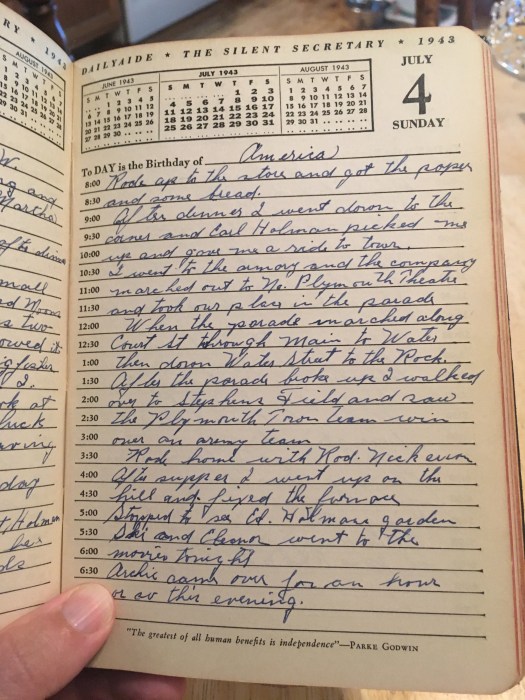 RY ★ 1943
AUGUST 1943
DAILYAIDE ★ THE SILENT SECRETARY ★ 1943
JUNE 1943
S M T W T F S
. . 1 2 3 4 5
6 7 8 9 10 11 12
13 14 15 16 17 18 19
20 21 22 23 24 25 26
27 28 29 30 . . .
JULY 1943
S M T W T F S
. . . . 1 2 3
4 5 6 7 8 9 10
11 12 13 14 15 16 17
18 19 20 21 22 23 24
25 26 27 28 29 30 31
AUGUST 1943
S M T W T F S
1 2 3 4 5 6 7
8 9 10 11 12 13 14
15 16 17 18 19 20 21
22 23 24 25 26 27 28
29 30 31 . . . .
JULY
4
SUNDAY
To DAY is the Birthday of America
8:00 Rode up to the store and got the paper
8:30 and some bread.
9:00 After dinner I went down to the
9:30 corner and Earl Holman picked me
10:00 up and gave me a ride to town.
10:30 I went to the armory and the company
11:00 marched out to No. Plymouth Theatre
11:30 and took our place in the parade
12:00 When the parade marched along
12:30 Court St through Main to Water
1:00 then down Water Street to the Rock.
1:30 After the parade broke up I walked
2:00 over to Stephens Field and saw
2:30 the Plymouth Town team win
3:00 over an army team
3:30 Rode home with Rod. Nickerson
4:00 After supper I went up on the
4:30 hill and fixed the furnace
5:00 Stopped to see Ed. Holmans garden
5:30 and Eleanor went to the
6:00 movies tonight
6:30 Archie came over for an hour
or so this evening.
"The greatest of all human benefits is independence"—PARKE GODWIN